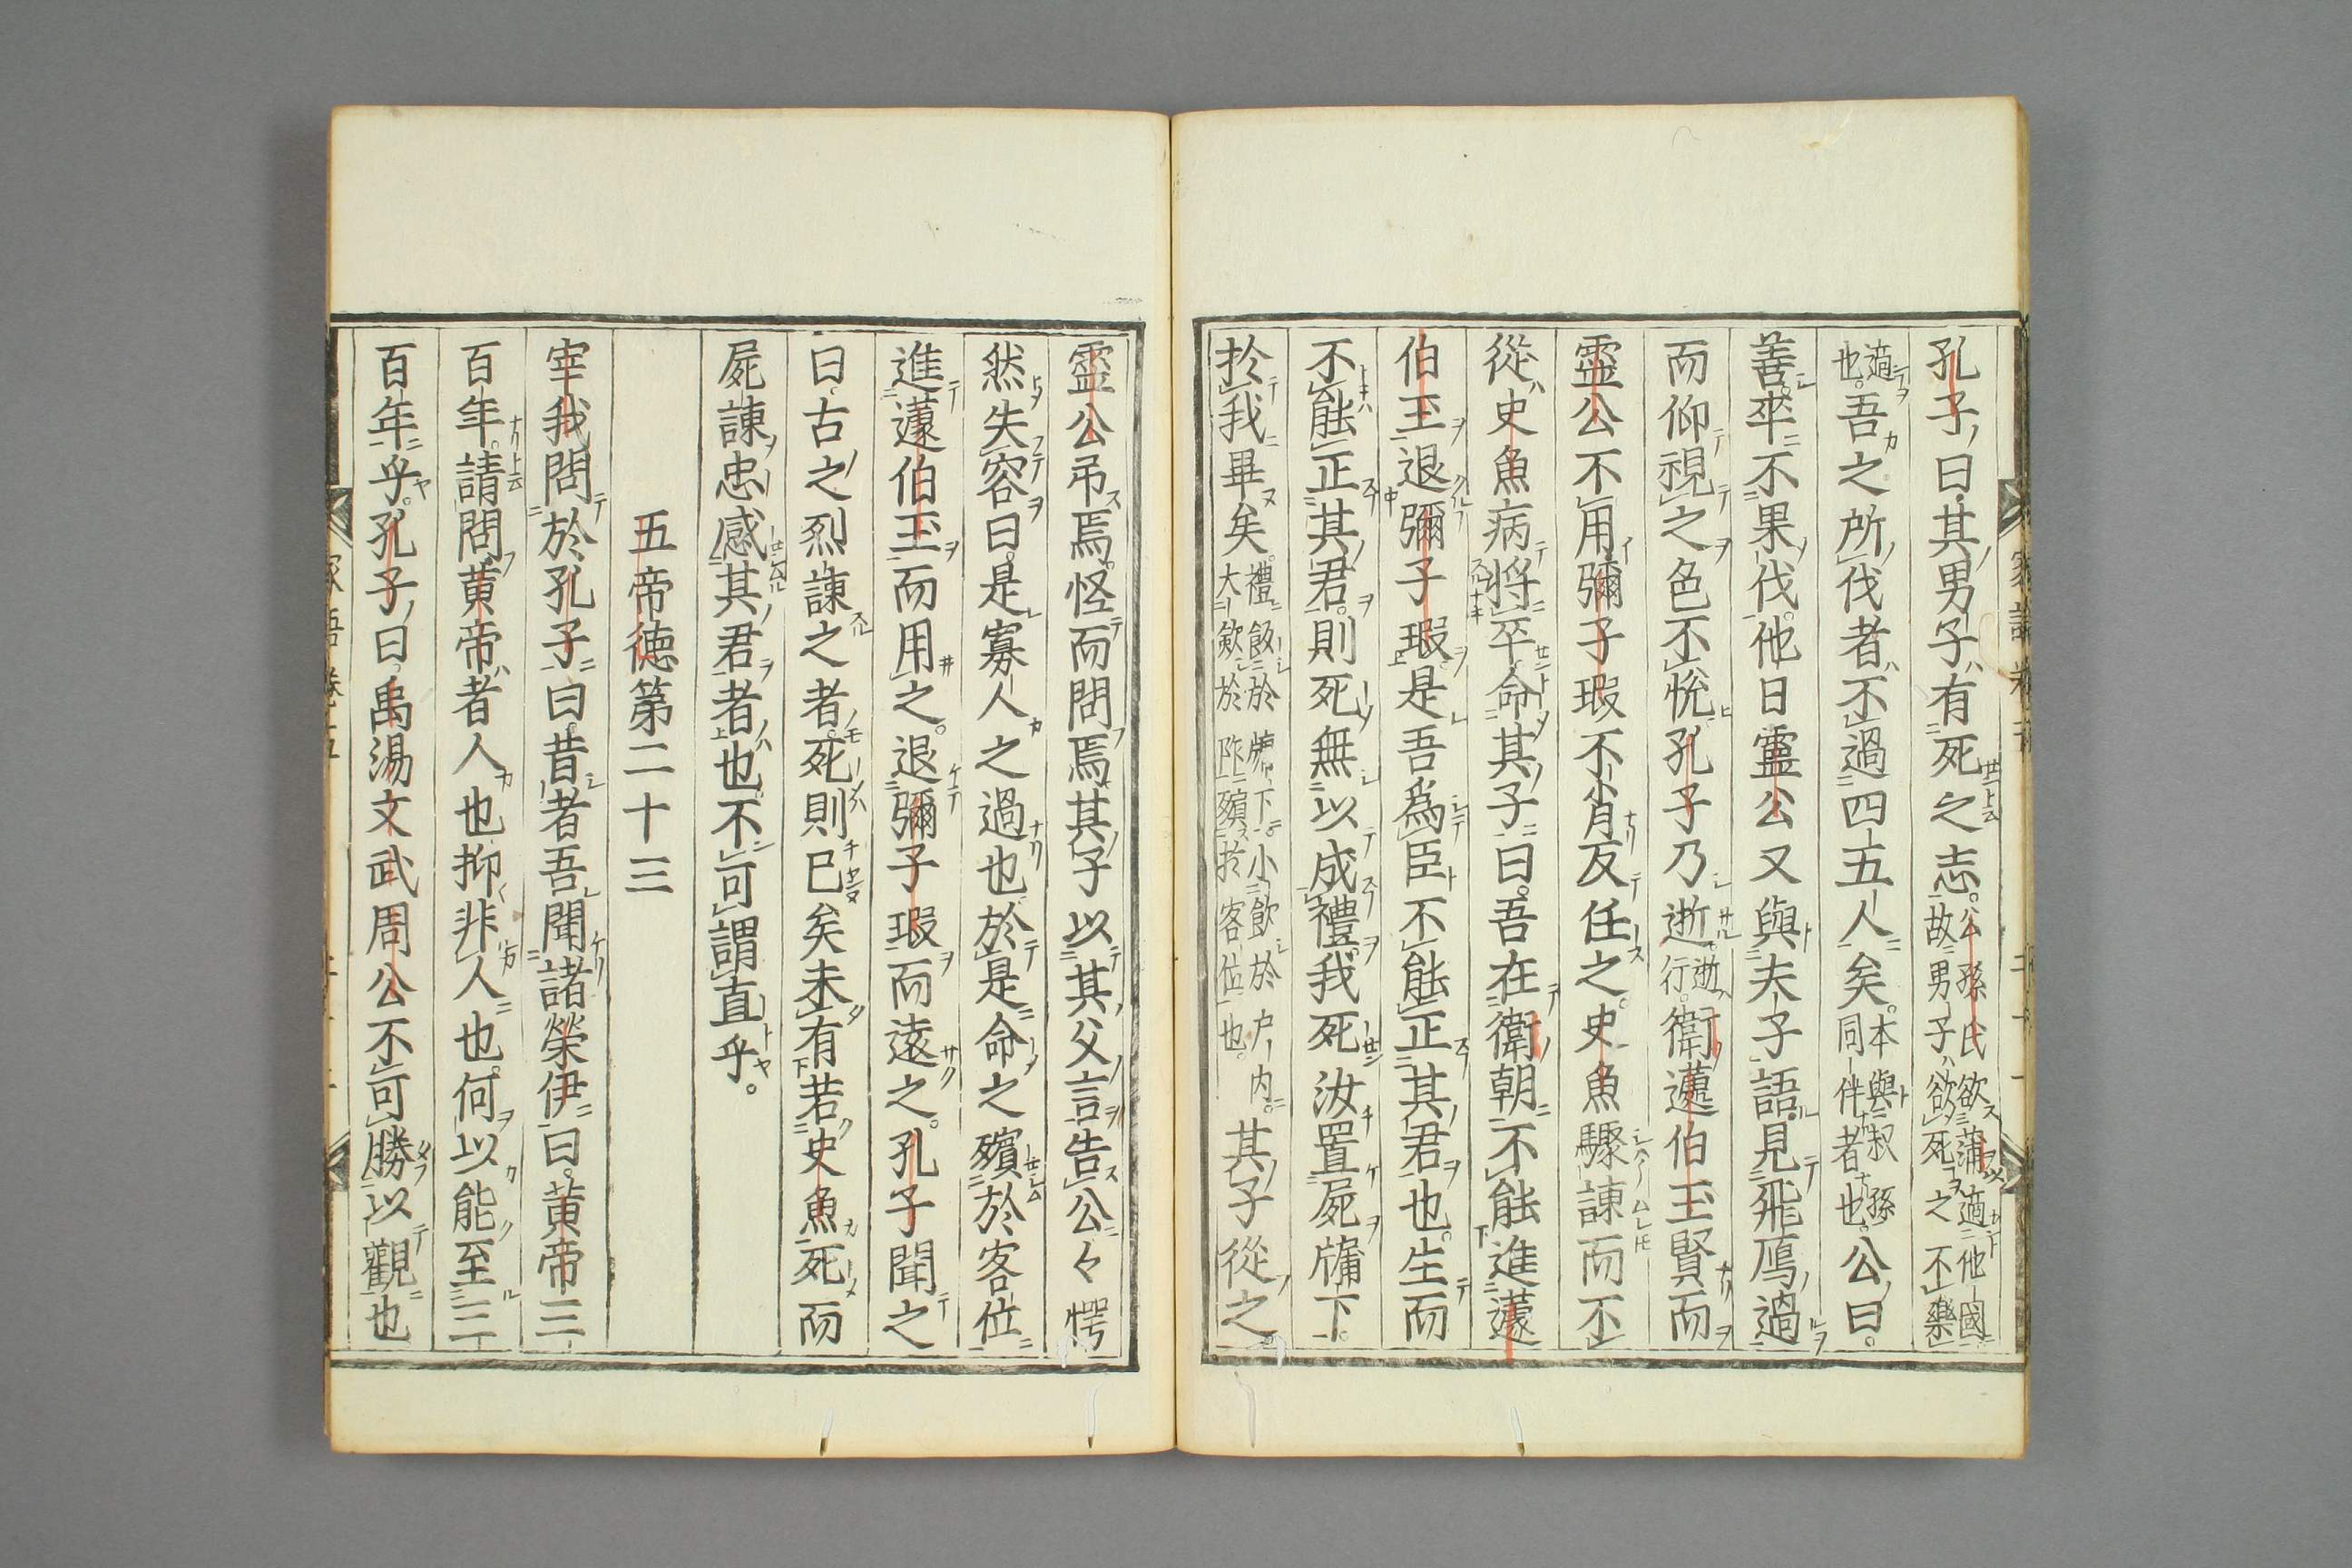 孔子曰其男子有死之志公孫氏欲蒲適他國故男子欲死之不樂
適也吾之所伐者不過四五人矣本與叔孫同伴者也公曰
善卒不果伐他日靈公又與夫子語見飛鴈過
而仰視之色不悅孔子乃逝逝行衛蘧伯玉賢而
靈公不用彌子瑕不肖反任之史魚驟諫而不
從史魚病將卒命其子曰吾在衛朝不能進蘧
伯玉退彌子瑕是吾爲臣不能正其君也生而
不能正其君則死無以成禮我死汝置屍牖下
於我畢矣禮飯於牖下小飲於戶內大斂於阼殯於客位也其子從之
靈公吊焉怪而問焉其子以其父言告公々愕
然失容曰是寡人之過也於是命之殯於客位
進蘧伯玉而用之退彌子瑕而遠之孔子聞之
曰古之烈諫之者死則已矣未有若史魚死而
屍諫忠感其君者也不可謂直乎
五帝德第二十三
宰我問於孔子曰昔者吾聞諸榮伊曰黃帝三
百年請問黃帝者人也抑非人也何以能至三
百年乎孔子曰禹湯文武周公不可勝以觀也